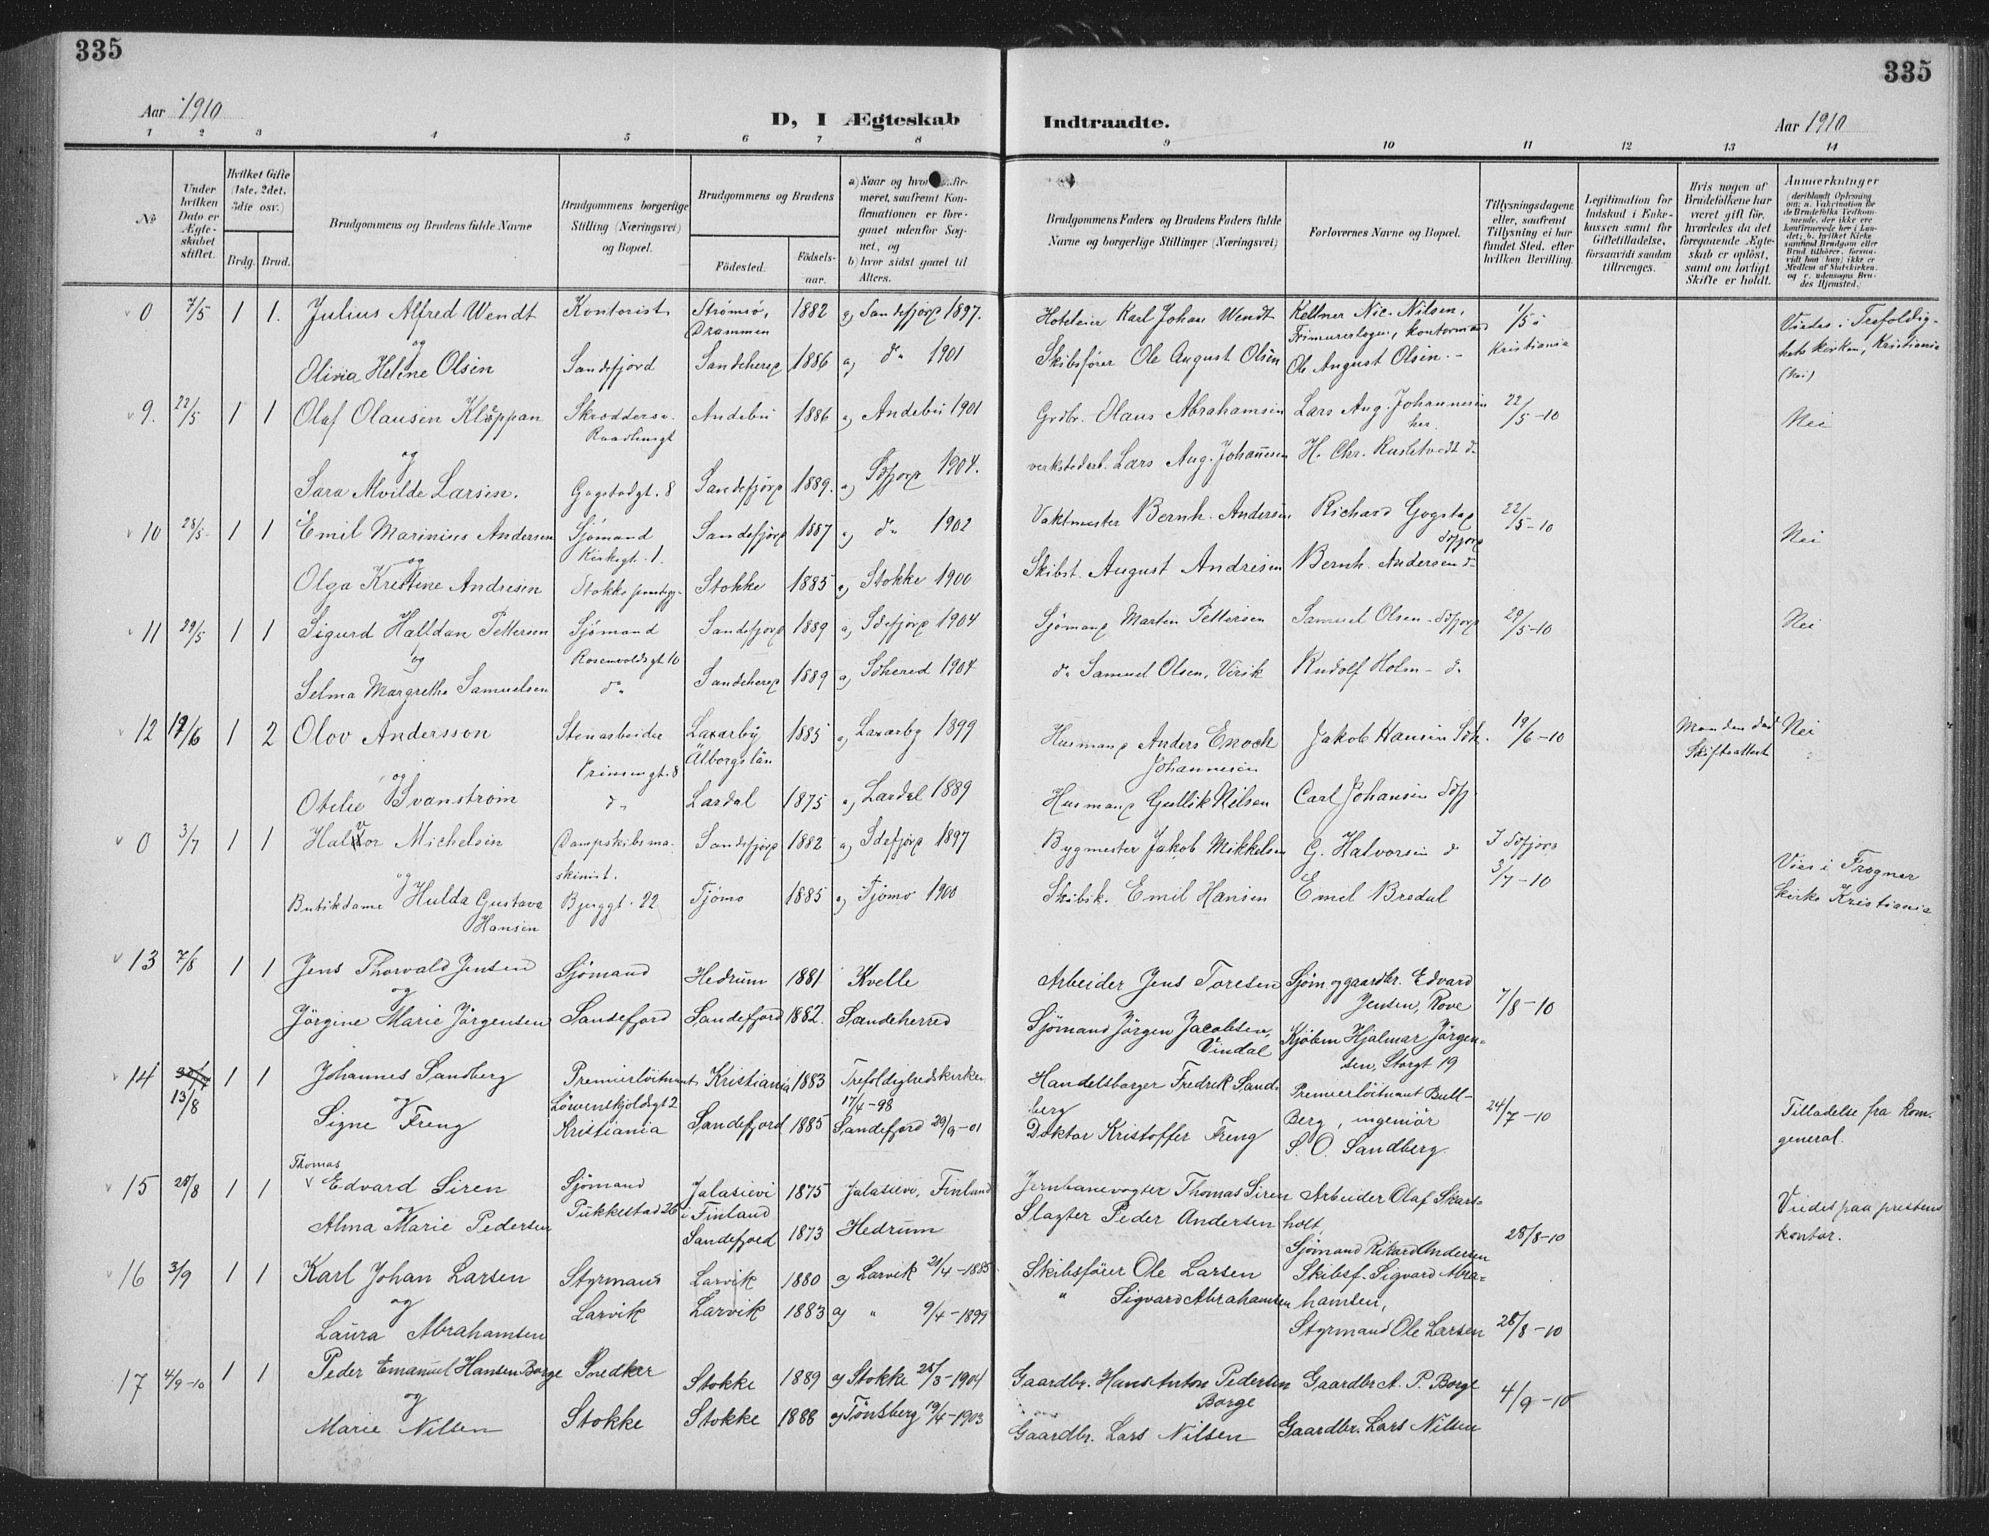 335
335
Aar 1910
D, I Ægteskab
Indtraadte.
Aar 1910
1 2 3 4 5 6 7 8 9 10 11 12 13 14
No
Under hvilken Dato er Ægteskabet stiftet.
Hvilket Gifte (1ste, 2det, 3die osv.)
Brdg. Brud.
Brudgommens og Brudens fulde Navne
Brudgommens borgerlige Stilling (Næringsvei) og Bopæl.
Brudgommens og Brudens
Födested. Födselsaar.
a) Naar og meret, saafremt Konfirmationen er foregaaet udenfor Sognet, og
b) hvor sidst gaaet til Alters.
Brudgommens Faders og Brudens Faders fulde Navne og borgerlige Stillinger (Næringsvei)
Forlovernes Navne og Bopæl.
Tillysningsdagene eller, saafremt Tillysning ei har fundet Sted, efter hvilken Bevilling.
Legitimation for Indskud i Enkekassen samt for Giftetilladelse, forsaavidt saadan tiltrænges.
Hvis nogen af Brudefolkene har været gift før, hvorledes da det foregaaende Ægteskab er opløst, samt om lovligt Skifte er holdt.
Anmærkninger
0 7/5 1 1. Julius Alfred Wendt Kontorist Strömsö, Drammen 1882 a) Sandefjord 1897. Hoteleier Karl Johan Wendt Kellner Nic. Nilsen, 1/5 i Kristiania Viedes i Trefoldighetskirken, Kristiania
og
Olivia Helene Olsen Sandefjord Sandeherred 1886 a) do 1901 Skibsfører Ole August Olsen Ole August Olsen. (Nei)
9. 22/5 1 1 Olaf Olausen Kläppan Skrædders. Raadhusgt Andebu 1886 a) Andebu 1901 Grdbr. Olaus Abrahamsen Lars Aug. Johannesen her. 22/5-10 Nei
og
Sara Alvilde Larsen. Gogstadgt. 8 Sandefjord 1889. a) Sdfjord 1904. verkstedarb. Lars Aug. Johannesen H. Chr. Rustetvedt do
10 28/5 1 1 Emil Marinius Andersen Sjömand Kirkegt. 1. Sandefjord 1887 a) do 1902 Vaktmester Bernh. Andersen Richard Gogstad Sdfjord 22/5-10 Nei
og
Olga Kristine Andresen Stokke Stokke 1885 a) Stokke 1900 Skibst. August Andresen Bernh. Andersen do
11 29/5 1 1 Sigurd Halfdan Pettersen Sjömand Rosenvoldsgt 10 Sandefjord 1889 a) Sdefjord 1904 Sjömand Martin Pettersen Samuel Olsen Sdfjord 29/5-10 Nei
og
Selma Margrethe Samuelsen do Sandeherred 1889 a) Sdherred 1904 do Samuel Olsen, Virik Rudolf Holm - do
12 19/6 1 2 Olov Andersson Stenarbeider Prinsensgt. 8 Laxarby Älborgs län 1885 a) Laxarby 1899 Husmand Anders Enoch Johannesen Jakob Hansen Sdh. 19/6-10 Manden død Skifteattest Nei
og
Otelie Svanstrøm do Lardal 1875 a) Lardal 1889 Husmand Gullik Nilsen Carl Johansen Sdfj
0 3/7 1 1 Halvor Michelsen Dampskibsmaskinist. Sandefjord 1882 a) Sdefjord 1897 Bygmester Jakob Mikkelsen G. Halvorsen do I Sdfjord 3/7-10 Vies i Frogner Kirke Kristiania
og
Butikdame Hulda Gustava Hansen Bjerggt. 22 Tjømø 1885 a) Tjømø 1900 Skibsk. Emil Hansen Emil Bredal
13 7/8 1 1 Jens Thorvald Jensen Sjömand Hedrum 1881 Kvelle Arbeider Jens Toresen Sjøm. og gaardbr. Edvard Jensen, Rove 7/8-10
og
Jørgine Marie Jørgensen Sandefjord Sandefjord 1882. Sandeherred Sjømand Jørgen Jacobsen, Vindal Kjøbm Hjalmar Jørgensen, Storgt 19
14 13/8 1 1 Johannes Sandberg Premierløitnant Løwenskjoldsgt 2 Kristiania 1883 Trefoldighedskirken 17/4-98 Handelsborger Fredrik Sandberg Premierløitnant Bull-Berg, ingeniør 24/7-10 Tilladelse fra kom. general.
og
Signe Freng Kristiania Sandefjord 1885 Sandefjord 29/9-01 Doktor Kristoffer Freng S. O. Sandberg.
15 28/8 1 1 Thomas Edvard Siren Sjömand Pukkestad 26 Jalasjevi i Finland 1875 Jalasjevi, Finland Jernbanevogter Thomas Siren Arbeider Olaf Skarsholt, 28/8-10 Viedes paa prestens kontor.
Alma Marie Pedersen Sandefjord 1873 Hedrum Slagter Peder Andersen Sjømand Rikard Andersen
16 3/9 1 1 Karl Johan Larsen Styrmand Larvik 1880 a) Larvik 21/4-1885 Skibsfører Ole Larsen Skibsf. Sigvard Abrahamsen, 28/8-10
og
Laura Abrahamsen Larvik Larvik 1883 a) " 9/4-1899 " Sigvard Abrahamsen Styrmand Ole Larsen
17 4/9-10 1 1 Peder Emanuel Hansen Borge Snedker Stokke 1889 a) Stokke 25/3-1904 Gaardbr. Hans Anton Pedersen Borge Gaardbr A. P. Borge 4/9-10
og
Marie Nilsen Stokke Stokke 1888 a) Tönsberg 19/4-1903 Gaardbr. Lars Nilsen Gaardbr. Lars Nilsen